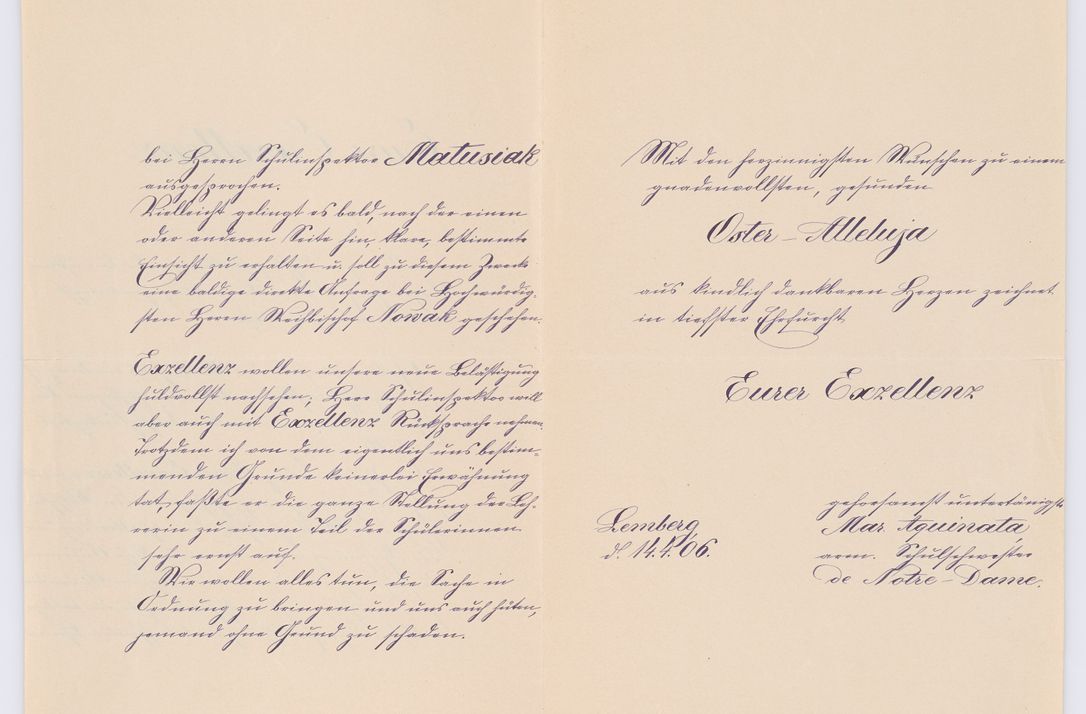 bei Herrn Schulinspektor Matusiak
ausgesprochen.
Vielleicht gelingt es bald, nach der einen
oder anderen Seite hin, klare, bestimmte
Einsicht zu erhalten u. soll zu diesem Zwecke
eine baldige direkte Anfrage bei Hochwürdig-
sten Herrn Weihbischof Nowak geschehen.
Exzellenz wollen unsere neue Belästigung
huldvollst nachsehen; Herr Schulinspektor will
aber auch mit Exzellenz Rücksprache nehmen.
Trotzdem ich von dem eigentlich uns bestim-
menden Grunde keinerlei Erwähnung
tat, faßte er die ganze Stellung der Leh-
rerin zu einem Teil der Schülerinnen
sehr ernst auf.
Wir wollen alles tun, die Sache in
Ordnung zu bringen und uns auch hüten,
jemand ohne Grund zu schaden.
Mit den herzinnigsten Wünschen zu einem
gnadenvollsten, gesunden
Oster-Alleluja
aus kindlich dankbaren Herzen zeichnet
in tiefster Ehrfurcht
Eurer Exzellenz
gehorsamst untertänigste
Lemberg
d. 14.4.06.
Mar. Aquinata,
arm. Schulschwester
de Notre-Dame.